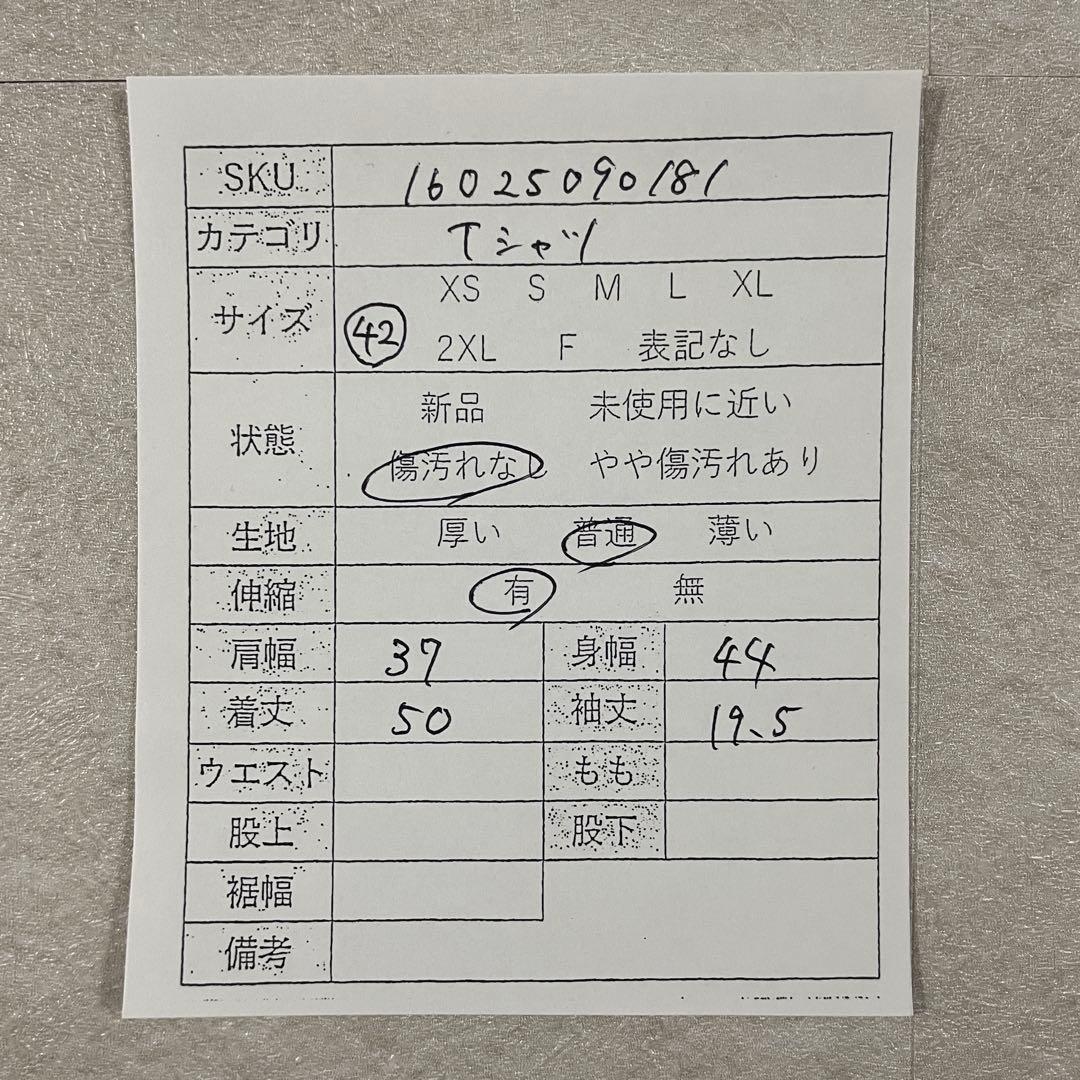 SKU 16025090181
カテゴリ Tシャツ
XS S M L XL
サイズ 42
2XL F 表記なし
新品 未使用に近い
状態
傷汚れなし やや傷汚れあり
生地 厚い 普通 薄い
伸縮 有 無
肩幅 37 身幅 44
着丈 50 袖丈 19.5
ウエスト もも
股上 股下
裾幅
備考